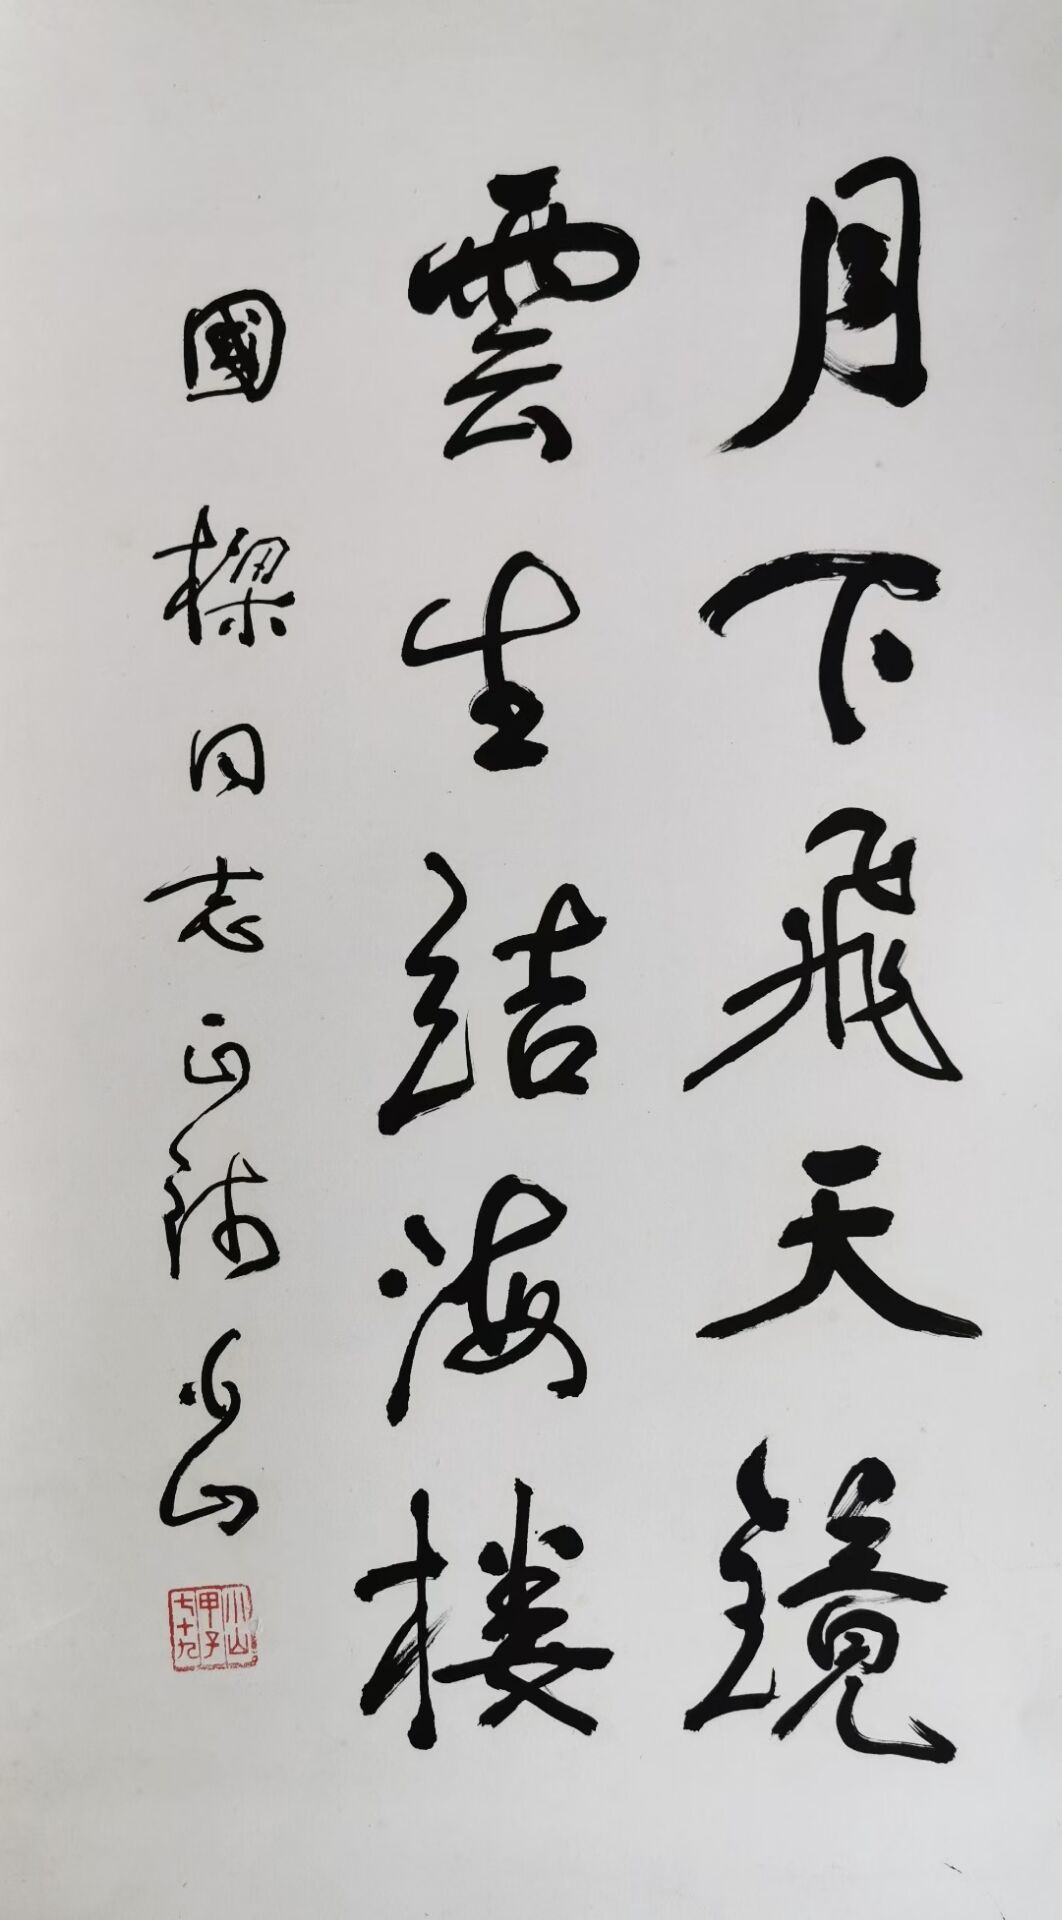 月下飛天鏡
雲生结海楼
國樑同志正腕小山
小山
甲子
七十九